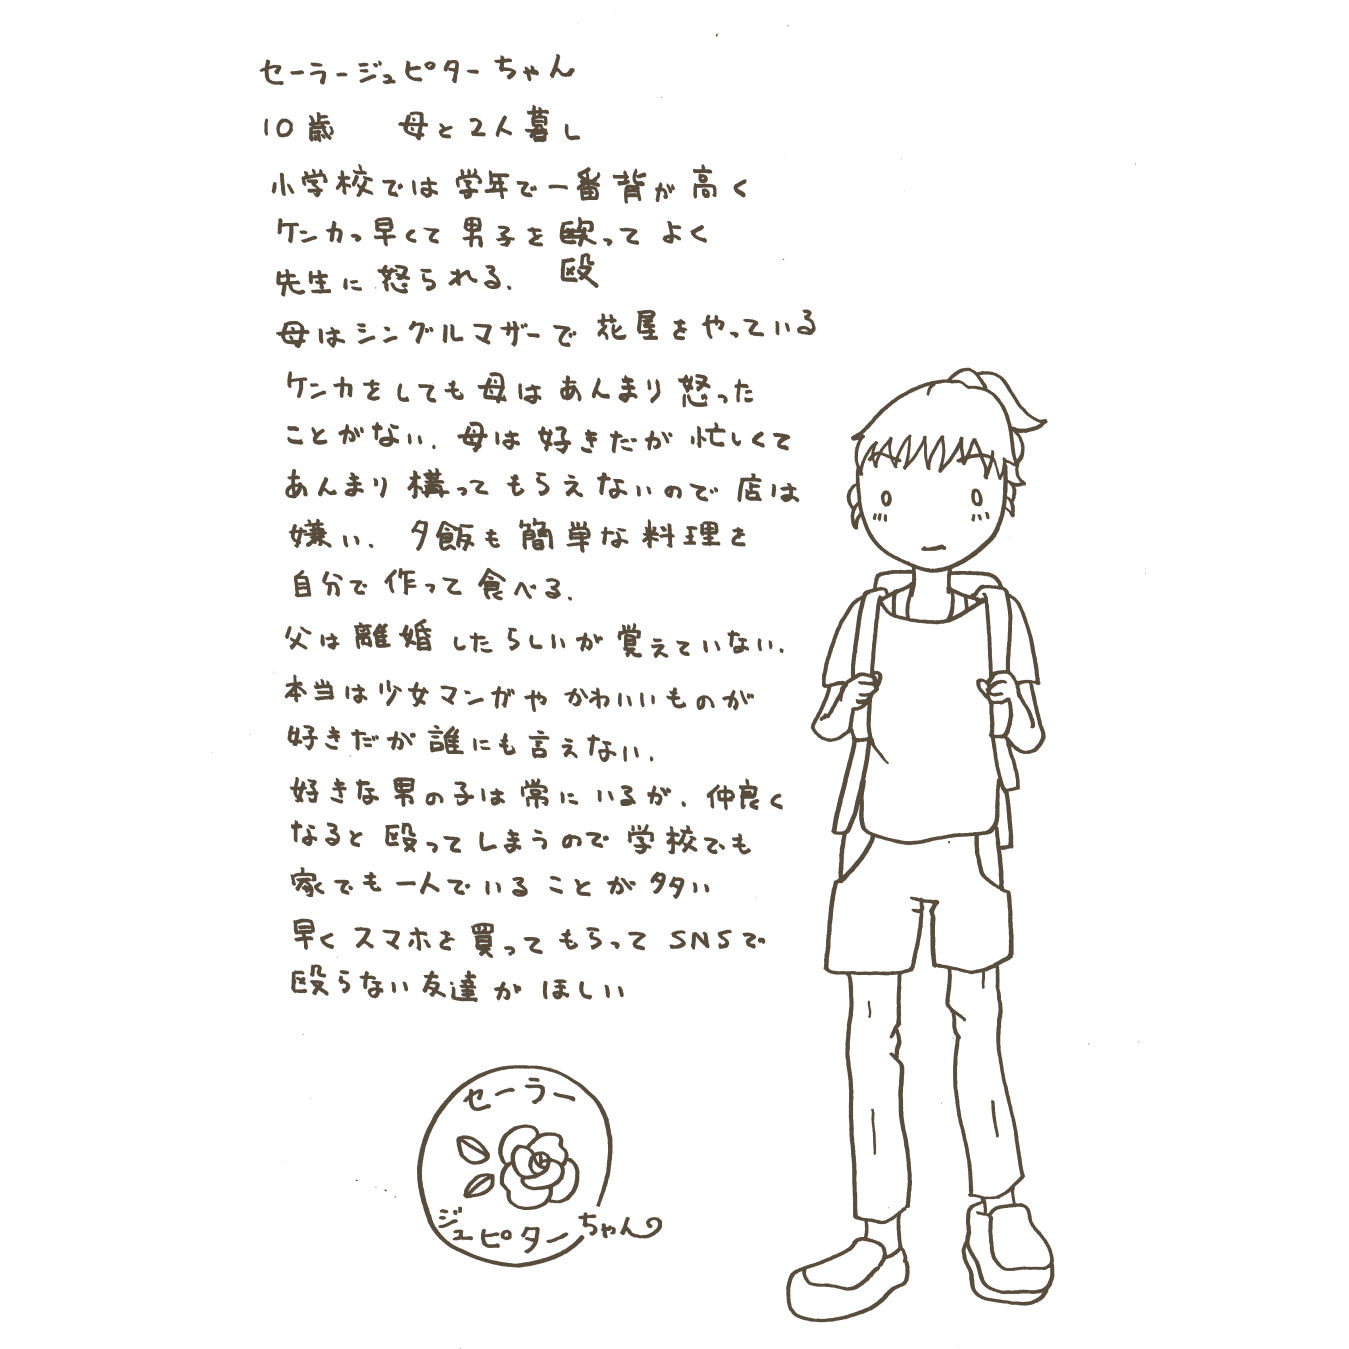 セーラージュピターちゃん
10歳　母と2人暮し
小学校では学年で一番背が高く
ケンカっ早くて男子を殴ってよく
殴
先生に怒られる.
母はシングルマザーで花屋をやっている
ケンカをしても母はあんまり怒った
ことがない. 母は好きだが忙しくて
あんまり構ってもらえないので店は
嫌い. 夕飯も簡単な料理を
自分で作って食べる.
父は離婚したらしいが覚えていない.
本当は少女マンガやかわいいものが
好きだが誰にも言えない.
好きな男の子は常にいるが. 仲良く
なると殴ってしまうので学校でも
家でも一人でいることが多い
早くスマホを買ってもらってSNSで
殴らない友達がほしい
セーラー
ジュピターちゃん